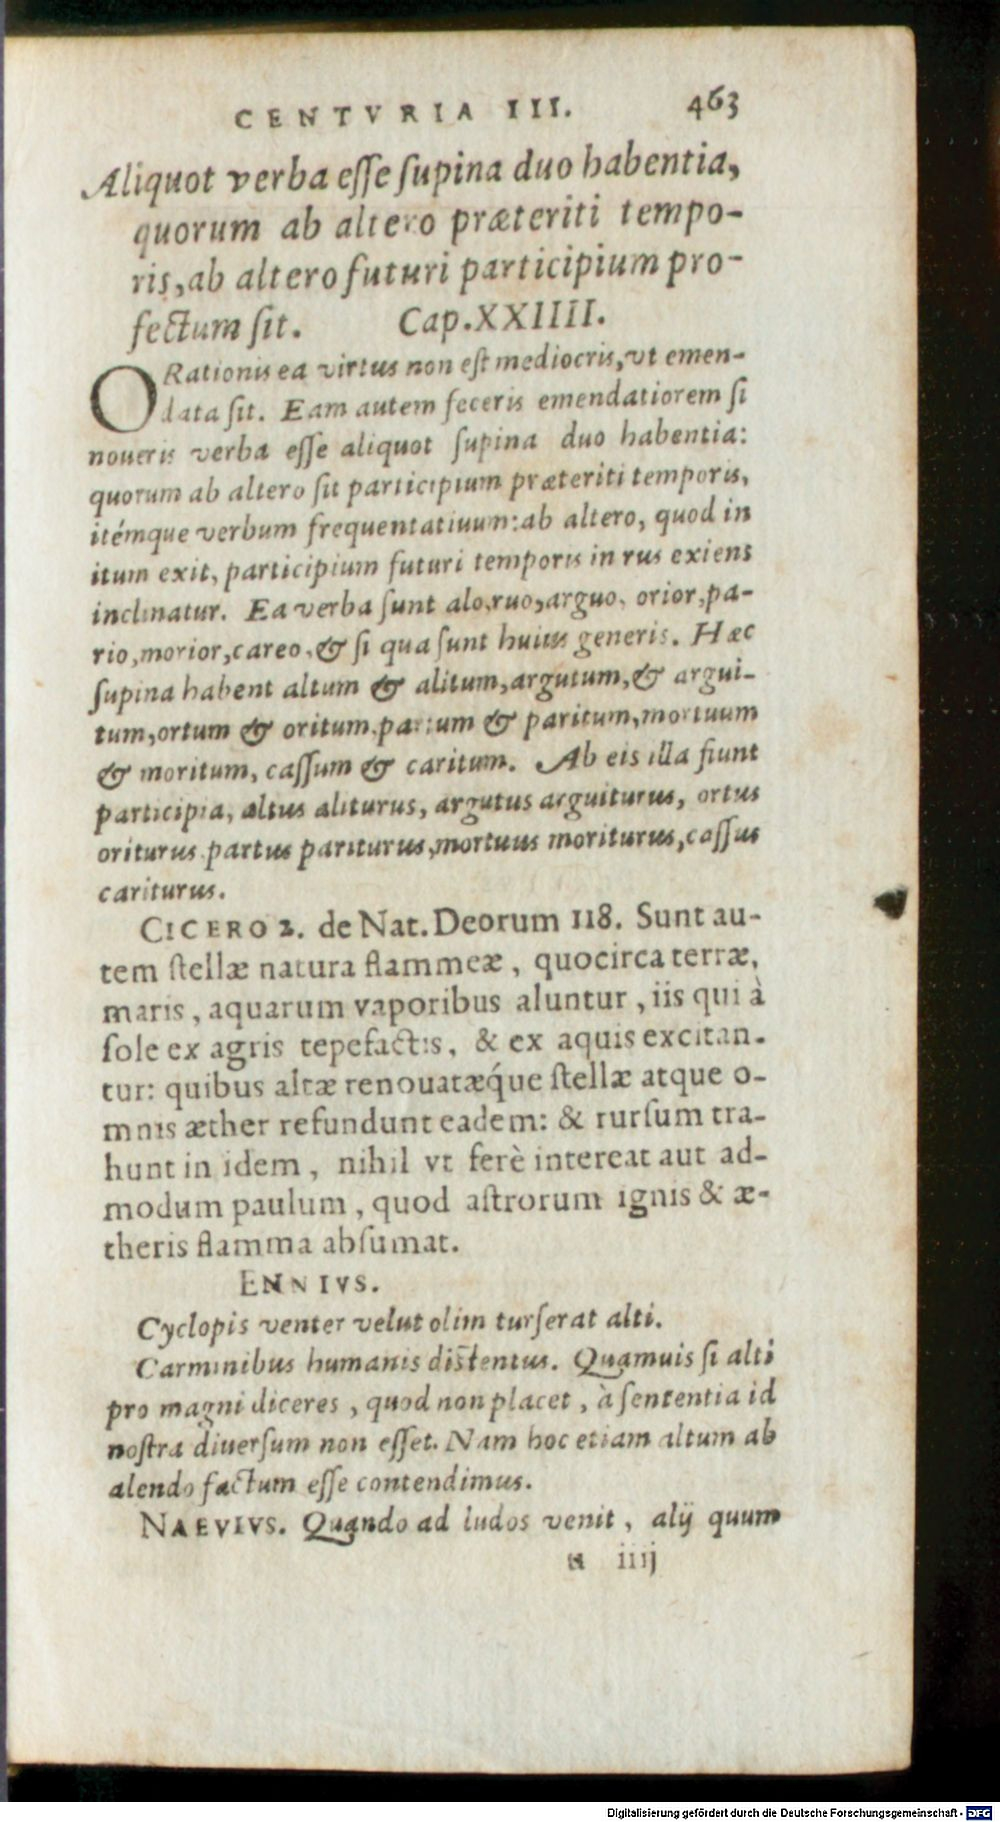 CENTVRIA III. 463
Aliquot verba esse supina duo habentia,
quorum ab altero præteriti tempo-
ris, ab altero futuri participium pro-
fectum sit. Cap. XXIIII.
ORationis ea virtus non est mediocris, vt emen-
data sit. Eam autem feceris emendatiorem si
noueris verba esse aliquot supina duo habentia:
quorum ab altero sit participium præteriti temporis,
itémque verbum frequentatiuum: ab altero, quod in
itum exit, participium futuri temporis in rus exiens
inclinatur. Ea verba sunt alo, ruo, arguo, orior, pa-
rio, morior, careo, & si qua sunt huius generis. Hæc
supina habent altum & alitum, argutum, & argui-
tum, ortum & oritum, partum & paritum, mortuum
& moritum, cassum & caritum. Ab eis illa fiunt
participia, altus aliturus, argutus arguiturus, ortus
oriturus, partus pariturus, mortuus moriturus, cassus
cariturus.
CICERO 2. de Nat. Deorum 118. Sunt au-
tem stellæ natura flammeæ, quocirca terræ,
maris, aquarum vaporibus aluntur, iis qui à
sole ex agris tepefactis, & ex aquis excitan-
tur: quibus altæ renouatæq́ue stellæ atque o-
mnis æther refundunt eadem: & rursum tra-
hunt in idem, nihil vt ferè intereat aut ad-
modum paulum, quod astrorum ignis & æ-
theris flamma absumat.
ENNIVS.
Cyclopis venter velut olim turserat alti.
Carminibus humanis distentus. Quamuis si alti
pro magni diceres, quod non placet, à sententia id
nostra diuersum non esset. Nam hoc etiam altum ab
alendo factum esse contendimus.
NAEVIVS. Quando ad ludos venit, alij quum
u iiij
Digitalisierung gefördert durch die Deutsche Forschungsgemeinschaft - DFG